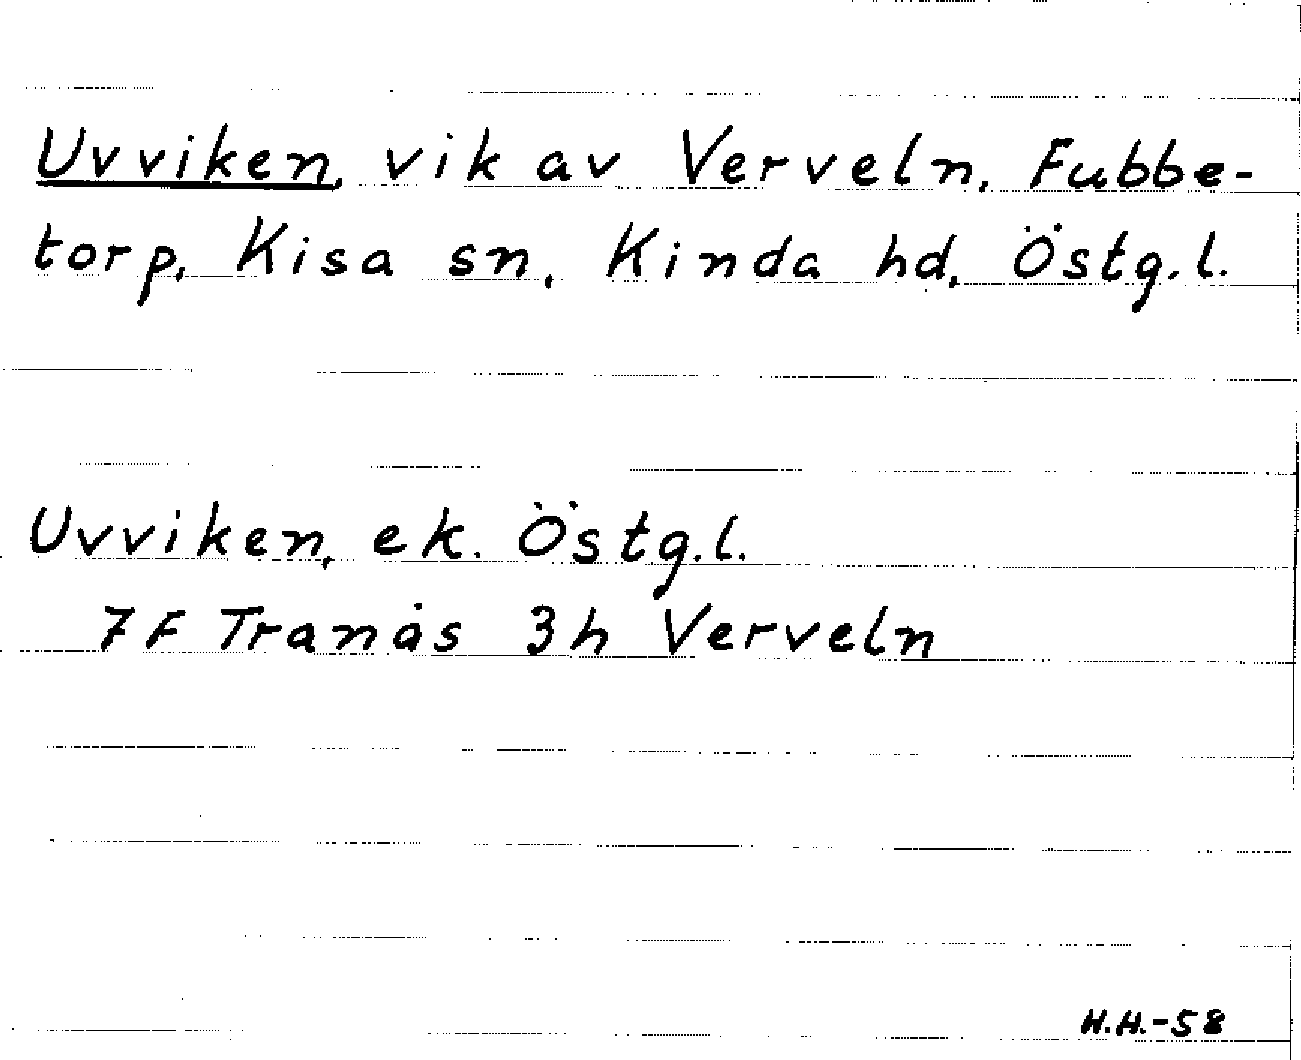 Uvviken, vik av Verveln, Fubbe-
torp, Kisa sn, Kinda hd, Östg.l.
Uvviken, ek. Östg.l.
7F Tranås 3h Verveln
H.H.-58